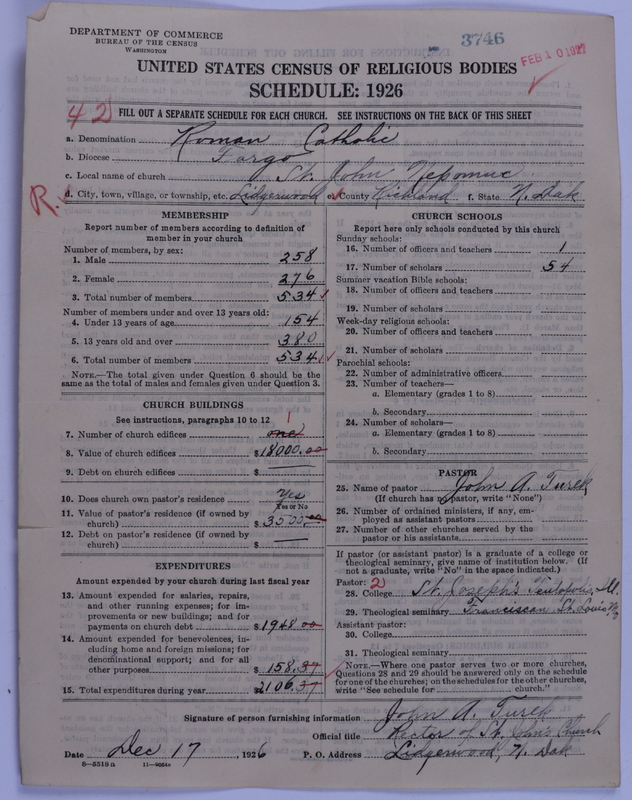 DEPARTMENT OF COMMERCE
BUREAU OF THE CENSUS
WASHINGTON
3746
FEB 10 1927
UNITED STATES CENSUS OF RELIGIOUS BODIES
SCHEDULE: 1926
42
FILL OUT A SEPARATE SCHEDULE FOR EACH CHURCH. SEE INSTRUCTIONS ON THE BACK OF THIS SHEET
a. Denomination Roman Catholic
b. Diocese Fargo
c. Local name of church St. John Nepomuc
R.
d. City, town, village, or township, etc. Lidgerwood e. County Richland f. State N. Dak
MEMBERSHIP
Report number of members according to definition of
member in your church
Number of members, by sex:
1. Male 258
2. Female 276
3. Total number of members 534
Number of members under and over 13 years old:
4. Under 13 years of age 154
5. 13 years old and over 380
6. Total number of members 534
NOTE.—The total given under Question 6 should be the
same as the total of males and females given under Question 3.
CHURCH BUILDINGS
See instructions, paragraphs 10 to 12
1
7. Number of church edifices one
8. Value of church edifices $18000.00
9. Debt on church edifices $
10. Does church own pastor's residence Yes
Yes or No
11. Value of pastor's residence (if owned by
church) $3500.00
12. Debt on pastor's residence (if owned by
church) $
EXPENDITURES
Amount expended by your church during last fiscal year
13. Amount expended for salaries, repairs,
and other running expenses; for im-
provements or new buildings; and for
payments on church debt $1948.00
14. Amount expended for benevolences, in-
cluding home and foreign missions; for
denominational support; and for all
other purposes $158.37
15. Total expenditures during year $2106.37
CHURCH SCHOOLS
Report here only schools conducted by this church
Sunday schools:
16. Number of officers and teachers 1
17. Number of scholars 54
Summer vacation Bible schools:
18. Number of officers and teachers
19. Number of scholars
Week-day religious schools:
20. Number of officers and teachers
21. Number of scholars
Parochial schools:
22. Number of administrative officers
23. Number of teachers—
a. Elementary (grades 1 to 8)
b. Secondary
24. Number of scholars—
a. Elementary (grades 1 to 8)
b. Secondary
PASTOR
25. Name of pastor John A. Turek
(If church has no pastor, write "None")
26. Number of ordained ministers, if any, em-
ployed as assistant pastors
27. Number of other churches served by the
pastor or his assistants
If pastor (or assistant pastor) is a graduate of a college or
theological seminary, give name of institution below. (If
not a graduate, write "No" in the space indicated.)
Pastor: 2
28. College St. Joseph's Teutopolis, Ill.
29. Theological seminary Franciscan St. Louis Mo
Assistant pastor:
30. College
31. Theological seminary
NOTE.—Where one pastor serves two or more churches,
Questions 28 and 29 should be answered only on the schedule
for one of the churches; on the schedules for the other churches,
write "See schedule for church."
Signature of person furnishing information John A. Turek
Official title Rector of St. Johns Church
Date Dec 17, 1926 P. O. Address Lidgerwood, N. Dak
8—5518 a